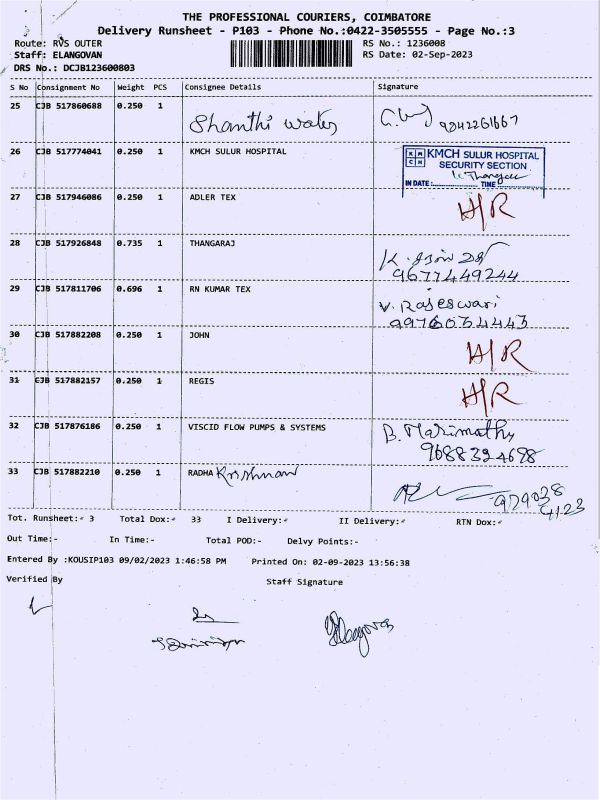 THE PROFESSIONAL COURIERS, COIMBATORE
Delivery Runsheet - P103 - Phone No.:0422-3505555 - Page No.:3
Route: RVS OUTER RS No.: 1236008
Staff: ELANGOVAN RS Date: 02-Sep-2023
DRS No.: DCJB123600803
S No Consignment No Weight PCS Consignee Details Signature
25 CJB 517860688 0.250 1 Shanthi water 9842261667
26 CJB 517774041 0.250 1 KMCH SULUR HOSPITAL KMCH SULUR HOSPITAL
SECURITY SECTION
IN DATE: TIME
27 CJB 517946086 0.250 1 ADLER TEX A/R
28 CJB 517926848 0.735 1 THANGARAJ
9677449244
29 CJB 517811706 0.696 1 RN KUMAR TEX V. Rajeswari
9976034443
30 CJB 517882208 0.250 1 JOHN A/R
31 CJB 517882157 0.250 1 REGIS A/R
32 CJB 517876186 0.250 1 VISCID FLOW PUMPS & SYSTEMS B. Marimathy
9688324698
33 CJB 517882210 0.250 1 RADHA Krishnan 979038
4123
Tot. Runsheet:- 3 Total Dox:- 33 I Delivery:- II Delivery:- RTN Dox:-
Out Time:- In Time:- Total POD:- Delvy Points:-
Entered By :KOUSIP103 09/02/2023 1:46:58 PM Printed On: 02-09-2023 13:56:38
Verified By Staff Signature